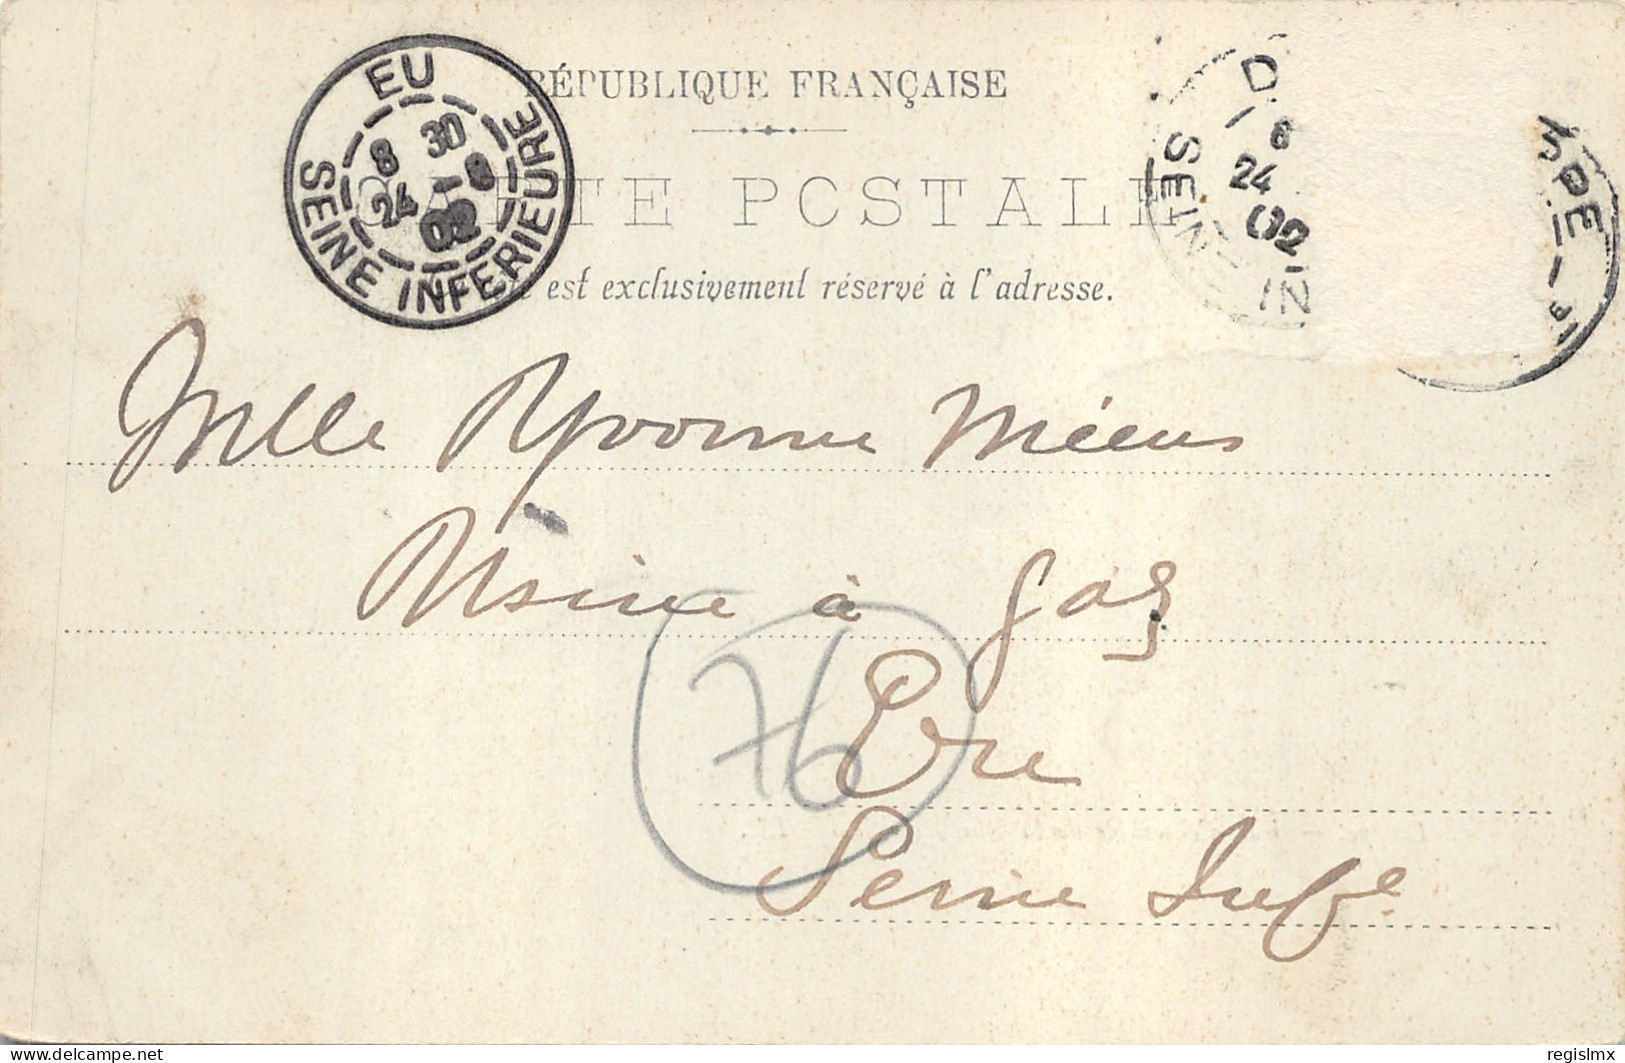 RÉPUBLIQUE FRANÇAISE
CARTE POSTALE
est exclusivement réservé à l'adresse.
EU
8 30
24 8
02
SEINE INFERIEURE
D PPE
6
24
02
SEINE IN
Mlle Yvonne Méeus
Usine à gaz
Eu
Seine Infre
76
delcampe.net
regislmx